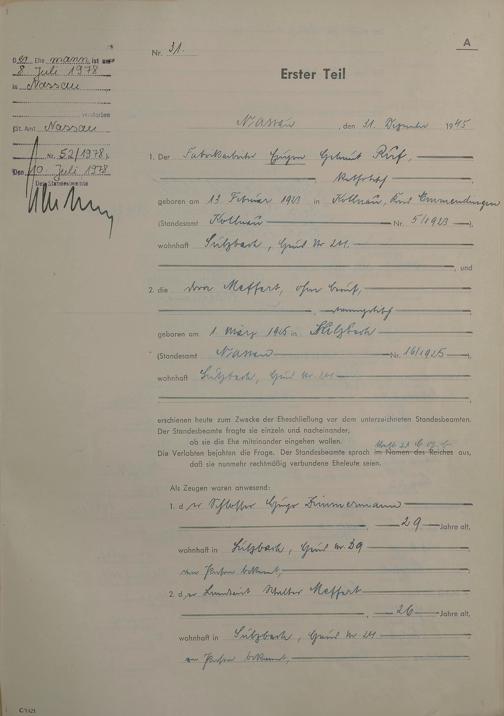 A
Nr. 31.
Erster Teil
Der Ehemann ist am
8. Juli 1978
in Nassau
verstorben
St. Amt Nassau
Nr. 52/1978.
Den 10. Juli 1978
Der Standesbeamte
Nassau, den 31. Dezember 1945
1. Der Fabrikarbeiter Eugen Helmut Ruf,
katholisch
geboren am 13. Februar 1923 in Kollnau, Emmendingen
(Standesamt Kollnau Nr. 5/1923),
wohnhaft Sulzbach, Haus Nr 21.
, und
2. die Dora Meffert, ohne Beruf,
, evangelisch
geboren am 1. März 1925 in Sulzbach
(Standesamt Nassau Nr. 16/1925),
wohnhaft Sulzbach, Haus Nr.
erschienen heute zum Zwecke der Eheschließung vor dem unterzeichneten Standesbeamten.
Der Standesbeamte fragte sie einzeln und nacheinander,
ob sie die Ehe miteinander eingehen wollen.
Die Verlobten bejahten die Frage. Der Standesbeamte sprach im Namen des Reiches aus,
daß sie nunmehr rechtmäßig verbundene Eheleute seien.
Als Zeugen waren anwesend:
1. der Schlosser Hugo Zimmermann
, 29 Jahre alt,
wohnhaft in Sulzbach, Haus Nr 29
von Person bekannt,
2. der Landwirt Walter Meffert
, 26 Jahre alt,
wohnhaft in Sulzbach, Haus Nr 21
von Person bekannt,